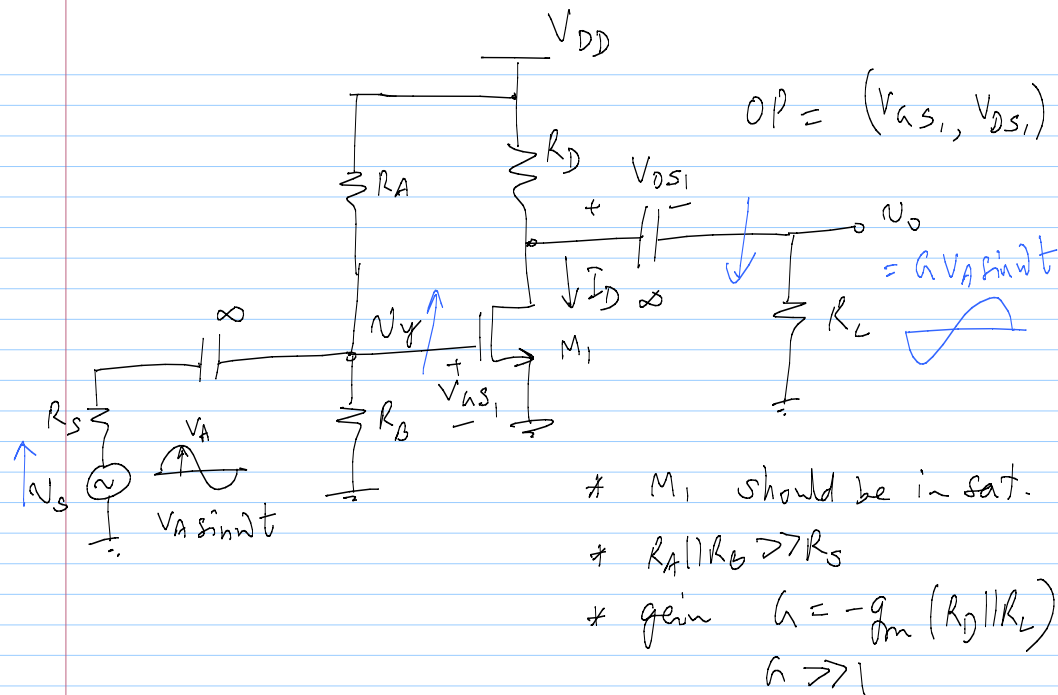 V_DD
OP = (V_GS1, V_DS1)
R_D
V_DS1
+ −
R_A
v_o
= G V_A sin ωt
I_D
∞
R_L
∞
v_y
M_1
+
V_GS1
−
R_S
R_B
V_A
~
v_s
V_A sin ωt
* M_1 should be in sat.
* R_A||R_B >> R_S
* gain G = -g_m (R_D||R_L)
G >> 1